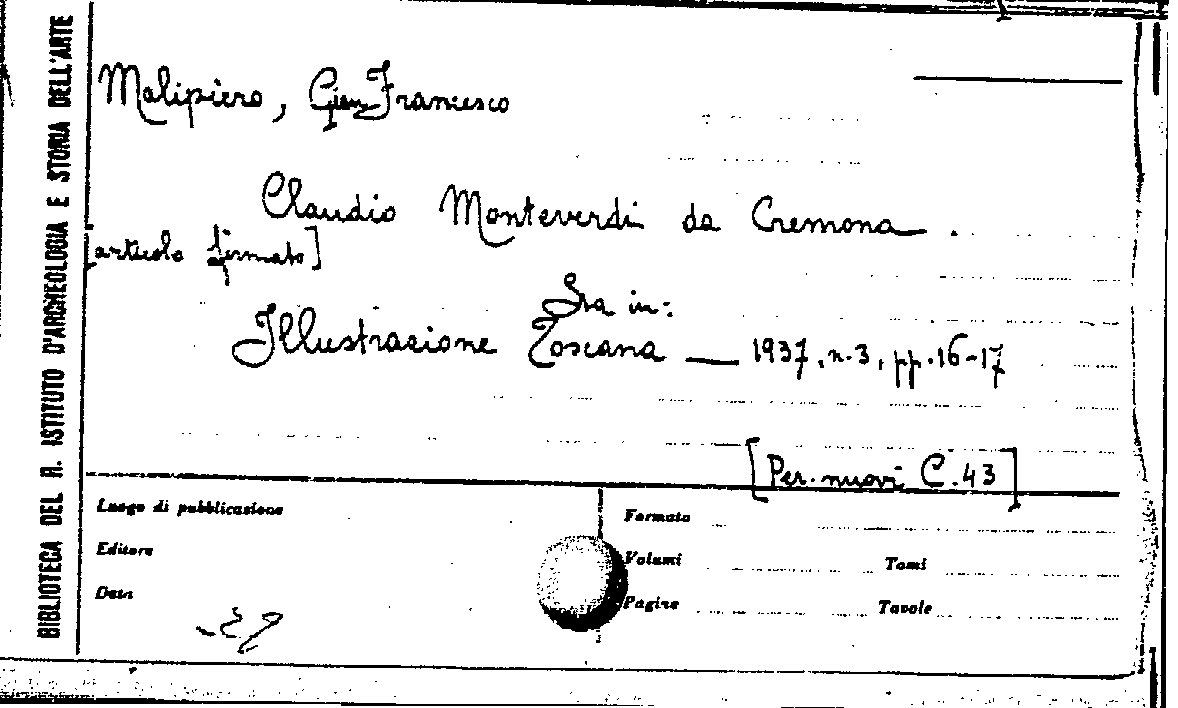 BIBLIOTECA DEL R. ISTITUTO D'ARCHEOLOGIA E STORIA DELL'ARTE
Malipiero, Gian Francesco
Claudio Monteverdi da Cremona.
[articolo firmato]
Sta in:
Illustrazione Toscana — 1937, n. 3, pp. 16-17
[Per. nuovi C. 43]
Luogo di pubblicazione
Editore
Data
Formato
Volumi Tomi
Pagine Tavole